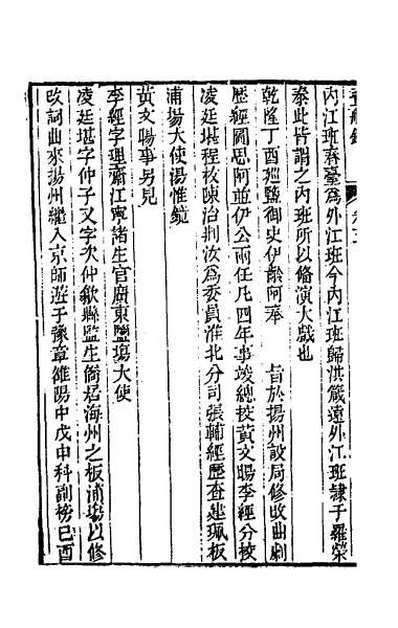 內江班齊臺爲外江班今內江班歸洪箴遠外江班隸于羅榮
泰此皆謂之內班所以俻演大戲也
乾隆丁酉巡鹽御史伊齡阿奉 旨於揚州設局修改曲劇
歷經圖思阿並伊公兩任凡四年事竣總校黃文暘李經分校
凌廷堪程枚陳治荆汝爲委員淮北分司張輔經歷查建珮板
浦場大使湯惟鏡
黃文暘事另見
李經字理齋江寧諸生官廣東鹽塲大使
凌廷堪字仲子又字次仲歙縣監生僑居海州之板浦塲以修
改詞曲來揚州繼入京師遊于豫章雒陽中戊申科副榜己酉